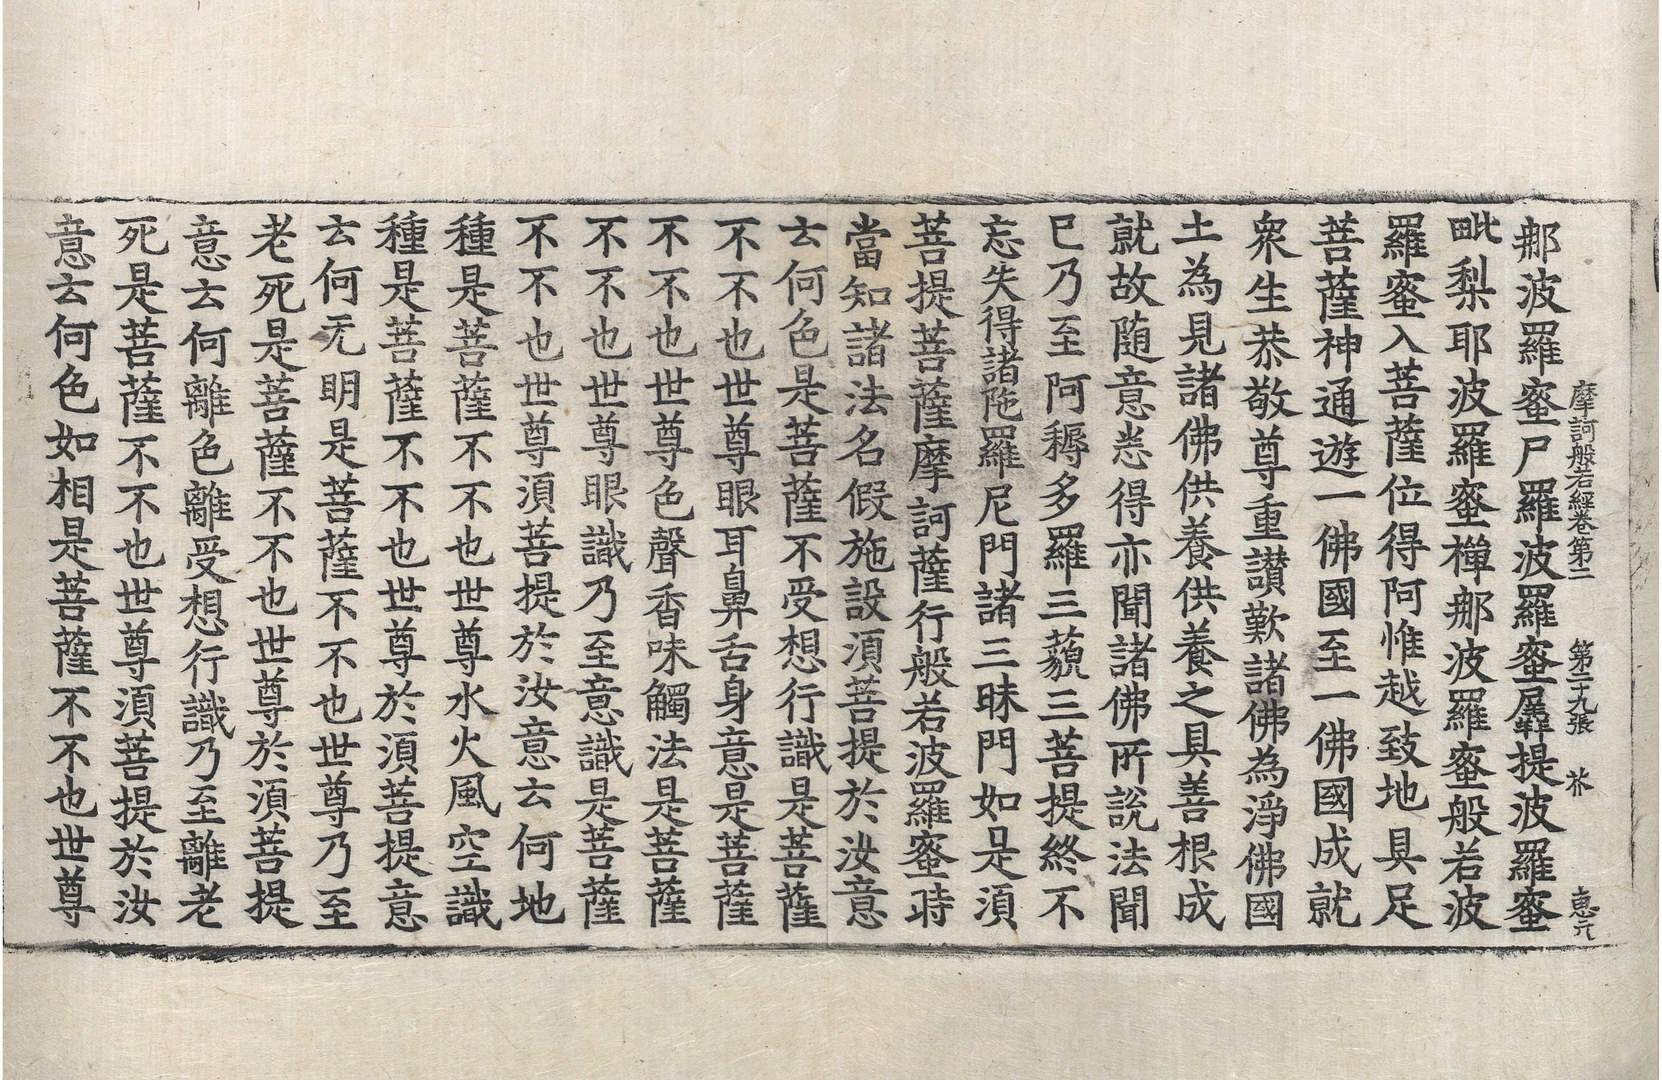 摩訶般若經卷第二　第二十九張　芥　惠六
那波羅蜜尸羅波羅蜜羼提波羅蜜
毗梨耶波羅蜜禪那波羅蜜般若波
羅蜜入菩薩位得阿惟越致地具足
菩薩神通遊一佛國至一佛國成就
衆生恭敬尊重讃歎諸佛為淨佛國
土為見諸佛供養供養之具善根成
就故随意悉得亦聞諸佛所說法聞
已乃至阿耨多羅三藐三菩提終不
忘失得諸陁羅尼門諸三昧門如是須
菩提菩薩摩訶薩行般若波羅蜜時
當知諸法名假施設須菩提於汝意
云何色是菩薩不受想行識是菩薩
不不也世尊眼耳鼻舌身意是菩薩
不不也世尊色聲香味觸法是菩薩
不不也世尊眼識乃至意識是菩薩
不不也世尊須菩提於汝意云何地
種是菩薩不不也世尊水火風空識
種是菩薩不不也世尊於須菩提意
云何无明是菩薩不不也世尊乃至
老死是菩薩不不也世尊於須菩提
意云何離色離受想行識乃至離老
死是菩薩不不也世尊須菩提於汝
意云何色如相是菩薩不不也世尊